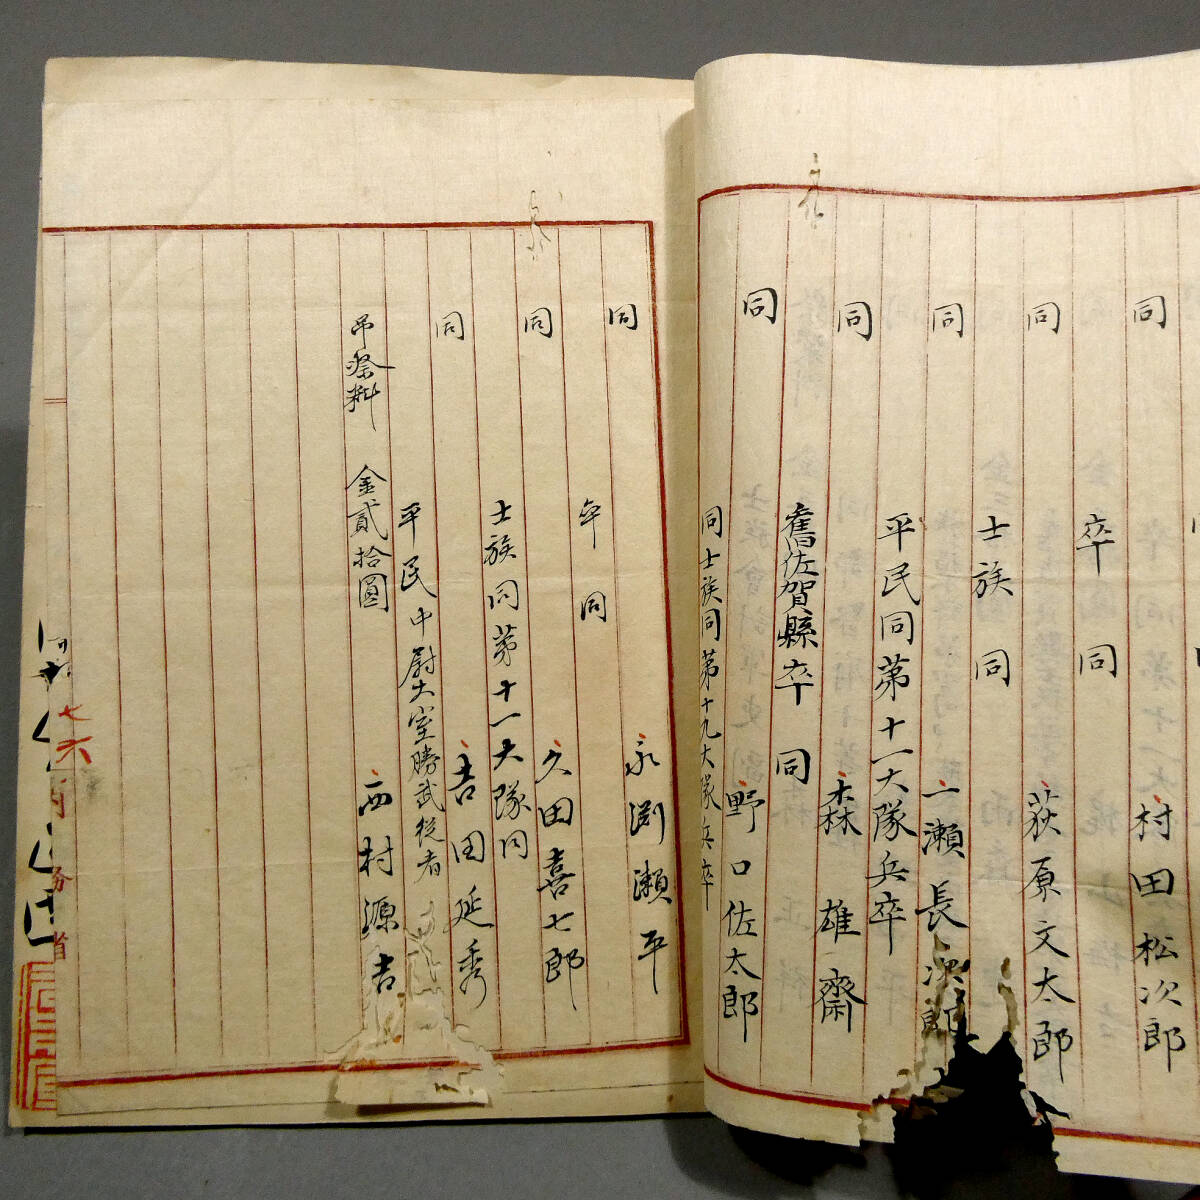 同
村田松次郎
卒 同
同
荻原文太郎
士族 同
同
一瀬長次郎
平民同第十一大隊兵卒
同
森 雄齋
舊佐賀縣卒 同
同
野口佐太郎
同士族同第十九大隊兵卒
同
永渕瀬平
卒 同
同
久田喜七郎
士族同第十一大隊同
同
吉田延秀
平民中尉大室勝武従者
西村源吉
吊祭料 金貳拾圓
七
六
省